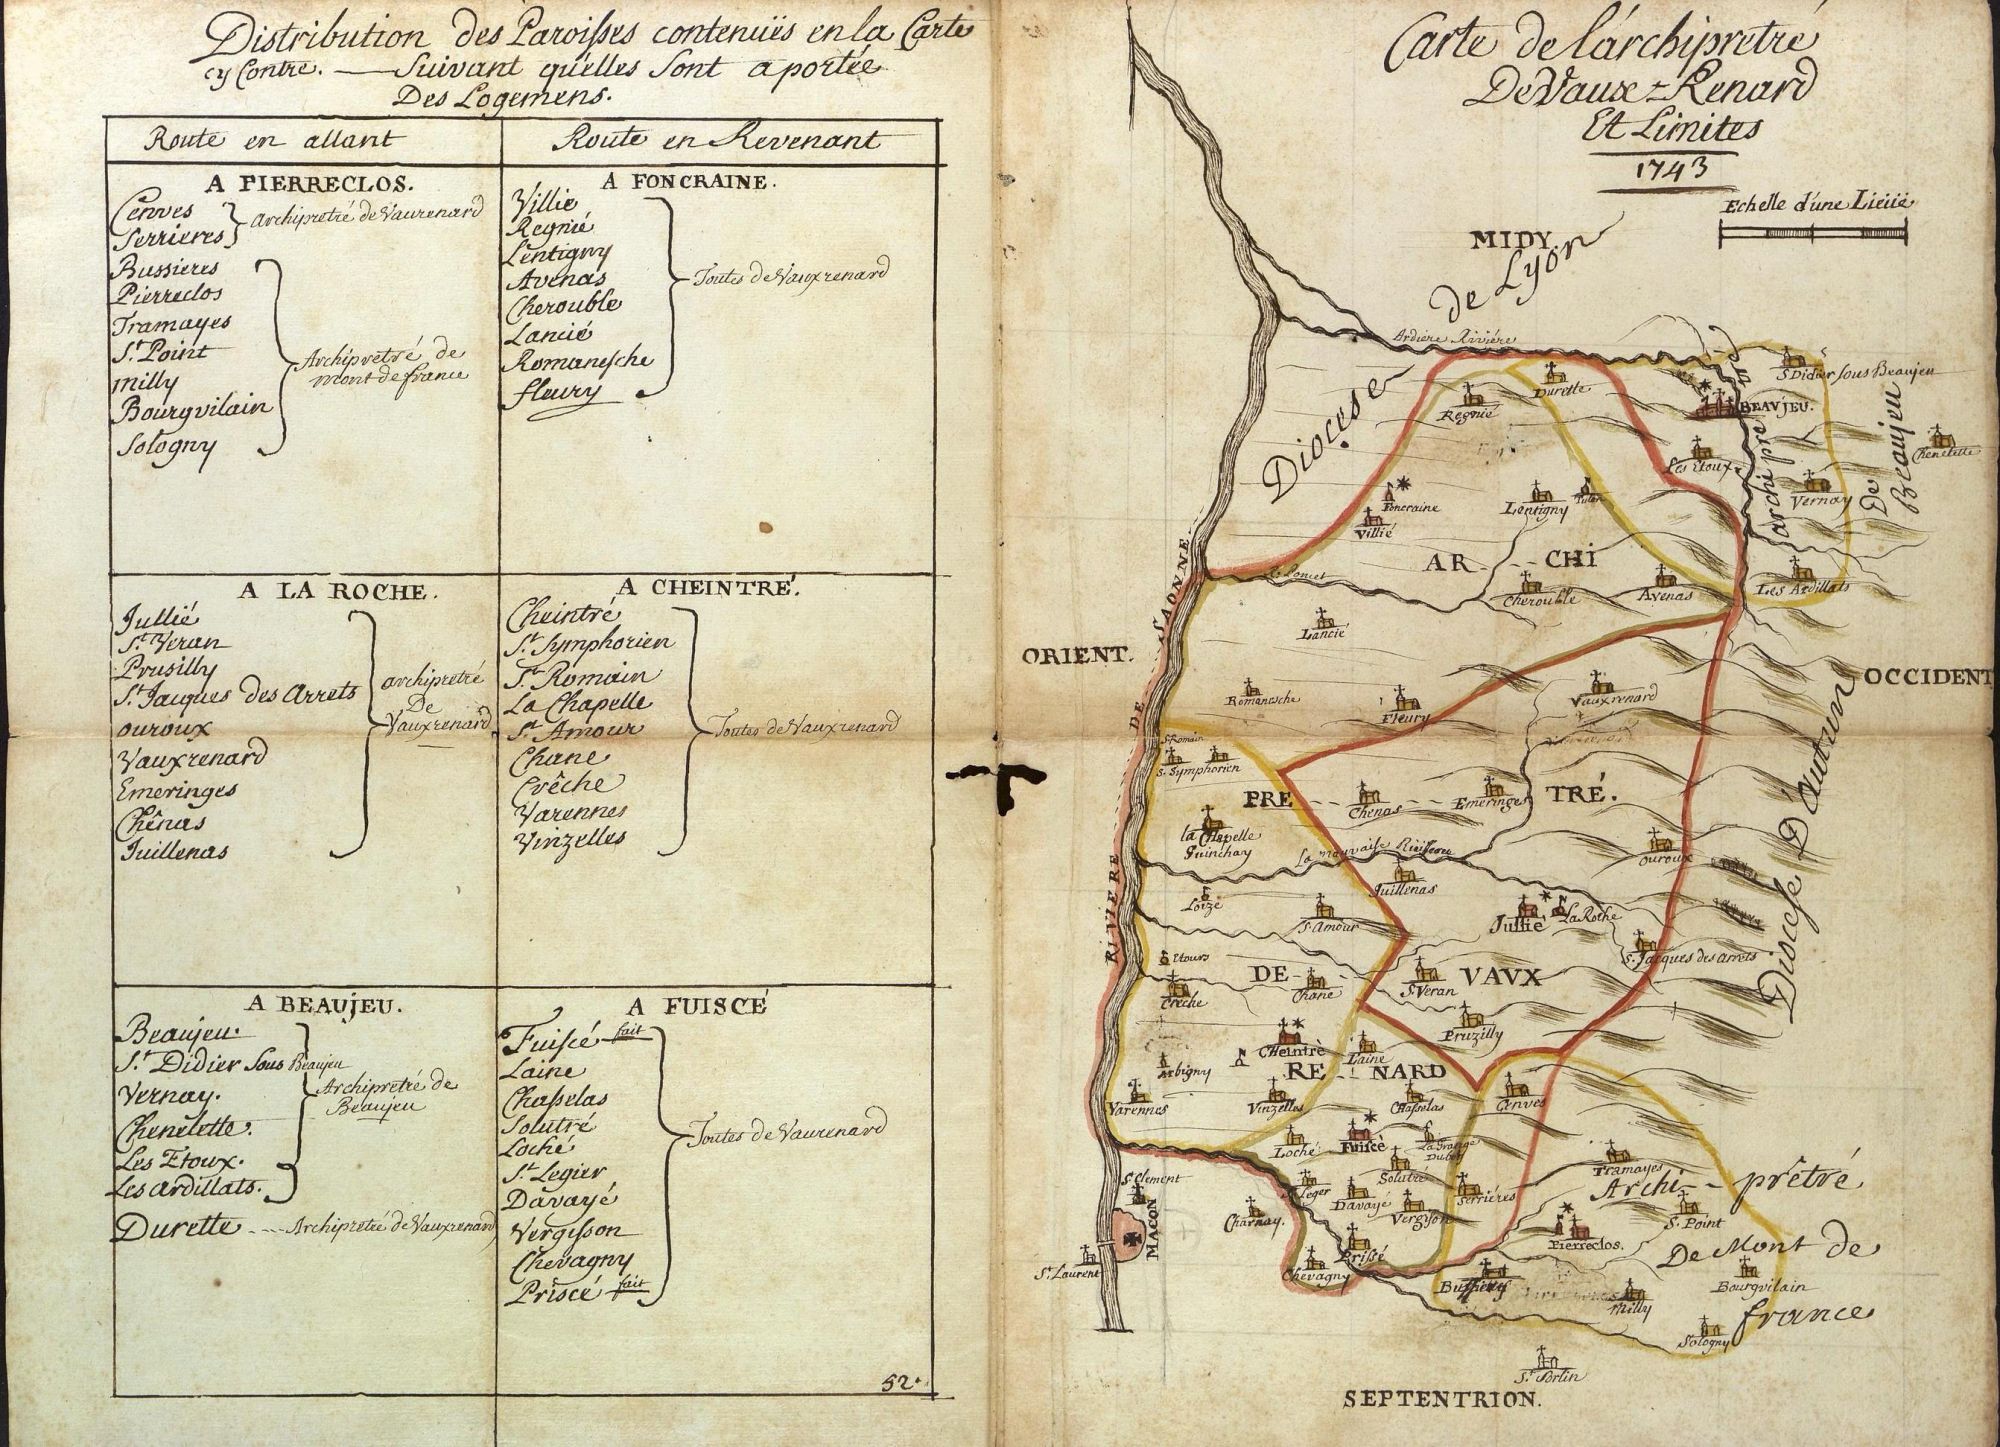 Distribution des Paroisses contenuës en la Carte
cy Contre. — Suivant qu'elles Sont a portée
Des Logemens.
Route en allant
Route en Revenant
A PIERRECLOS.
Cenves
Serrieres
Archiprêtré de Vauxrenard
Bussieres
Pierreclos
Tramayes
St. Point
milly
Bourgvilain
Sologny
Archiprêtré de
mont de france
A FONCRAINE.
Villié
Regnié
Lentigny
Avenas
Cherouble
Lancié
Romanesche
fleury
Toutes de Vauxrenard
A LA ROCHE.
Jullié
St. Veran
Prusilly
St. Jaques des Arrets
ouroux
Vauxrenard
Emeringes
Chênas
Juillenas
archiprêtré
De
Vauxrenard
A CHEINTRÉ.
Cheintré
St. Symphorien
St. Romain
La Chapelle
St. Amour
Chane
Crêche
Varennes
Vinzelles
Toutes de Vauxrenard
A BEAUJEU.
Beaujeu.
St. Didier sous Beaujeu
Vernay.
Chenelette.
Les Etoux.
Les ardillats.
Archiprêtré de
Beaujeu
Durette --- Archiprêtré de Vauxrenard
A FUISCÉ
Fuiscé fait
Laine
Chasselas
Solutré
Loché
St. Legier
Davayé
Vergisson
Chevagny
Priscé fait
Toutes de Vauxrenard
52.
Carte de l'archiprêtré
De Vaux = Renard
Et Limites
1743
Echelle d'une Lieüe
MIDY
Diocese de Lyon
Ardiere Riviére
St Didier sous Beaujeu
Durette
Regnié
BEAUJEU.
archi pré tré
De
Beaujeu
Chenelette
Les Etoux
Vernay
Foncraine
Villié
Lentigny
AR - CHI
Cherouble
Avenas
Les Ardillats
Lancié
RIVIERE DE SAONNE
ORIENT.
OCCIDENT
Romanesche
Fleury
Vauxrenard
S. Romain
S. Symphorien
PRE
Chenas
Emeringes
TRÉ.
la Chapelle
Guinchay
La mauvaise Riviere
Ouroux
Juillenas
Diocese D'autun
Loize
S. Amour
Jullié
La Roche
S. Jacques des arrets
Etours
DE
VAUX
Crêche
Chane
S. Veran
Pruzilly
CHeintré
Laine
Arbigny
RE - NARD
Varennes
Vinzelles
Chasselas
Cenves
Loché
Fuiscé
La Grange
Solutré
Tramayes
Archi - prêtré
St Clement
S. Leger
Davayé
Vergison
Serriéres
MACON
Charnay.
S. Point
Pierreclos.
De Mont de
Priscé
St. Laurent
Chevagny
Bussieres
Bourgvilain
Milly
france
Sologny
St. Sorlin
SEPTENTRION.